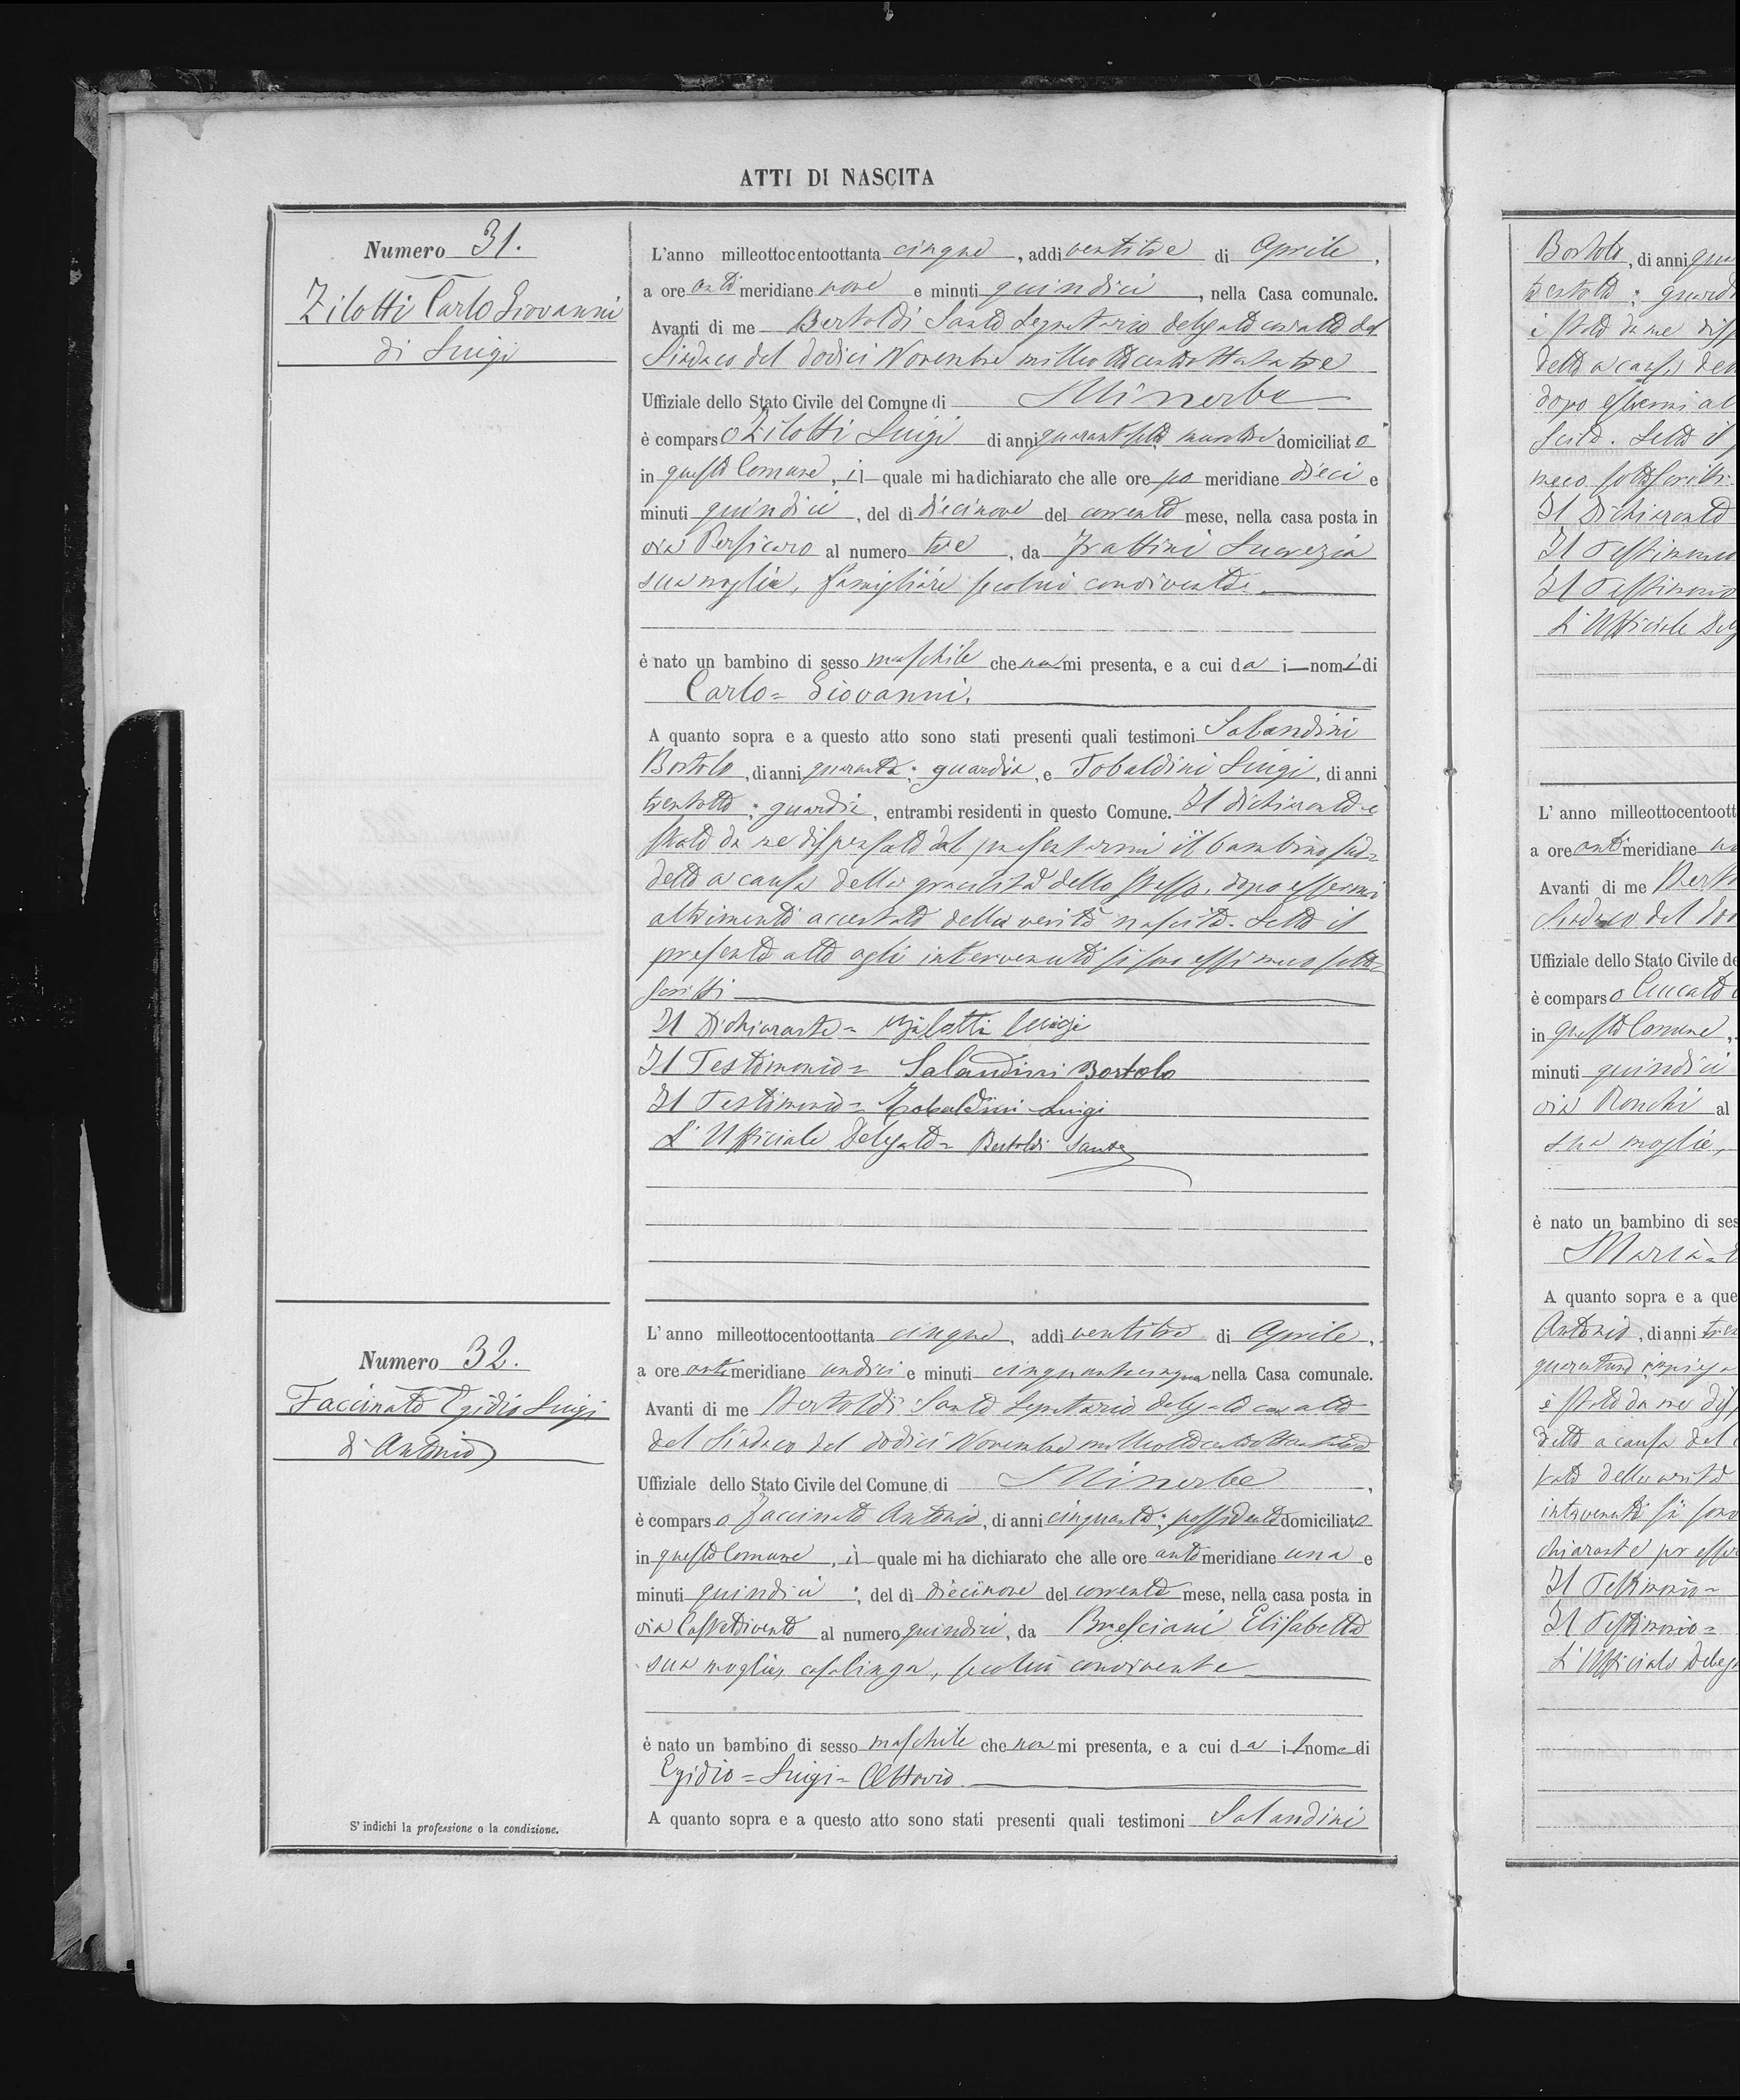 ATTI DI NASCITA
Numero 31.
Zilotti Carlo Giovanni
di Luigi
L'anno milleottocentoottanta cinque, addi ventitre di Aprile,
a ore anti meridiane nove e minuti quindici, nella Casa comunale.
Avanti di me Bertoldi Sante Segretario delegato con atto del
Sindaco del dodici Novembre milleottocentottantatre
Uffiziale dello Stato Civile del Comune di Minerbe
è comparso Zilotti Luigi di anni domiciliato
in questo Comune, il quale mi ha dichiarato che alle ore po meridiane dieci e
minuti quindici, del dì diecinove del corrente mese, nella casa posta in
via Persicaro al numero tre, da Frattini Lucrezia
sua moglie, seco lui convivente.
è nato un bambino di sesso maschile che non mi presenta, e a cui da i nomi di
Carlo= Giovanni.
A quanto sopra e a questo atto sono stati presenti quali testimoni Salandini
Bortolo, di anni quaranta; guardia, e Tobaldini Luigi, di anni
trentotto; guardia, entrambi residenti in questo Comune. Il dichiarante è
stato da me dispensato dal presentarmi il bambino sud=
detto a causa della gracilità dello stesso, dopo essermi
altrimenti accertato della verità nascita. Letto il
presente atto agli intervenuti si sono essi meco sotto=
scritti
Il Dichiarante= Luigi
Il Testimonio= Salandini Bortolo
Il Testimonio= Tobaldini Luigi
L'Ufficiale Delegato= Bertoldi Sante
Numero 32.
Faccinato Egidio Luigi
di Antonio
L'anno milleottocentoottanta cinque, addi ventitre di Aprile,
a ore anti meridiane undici e minuti cinquantacinque nella Casa comunale.
Avanti di me Bertoldi Sante Segretario delegato con atto
del Sindaco del dodici Novembre milleottocentottantatre
Uffiziale dello Stato Civile del Comune di Minerbe,
è comparso Faccinato Antonio, di anni cinquanta; possidente domiciliato
in questo Comune, il quale mi ha dichiarato che alle ore anti meridiane una e
minuti quindici; del dì diecinove del corrente mese, nella casa posta in
via al numero quindici, da Bresciani Elisabetta
sua moglie, casalinga, seco lui convivente
è nato un bambino di sesso maschile che non mi presenta, e a cui da il nome di
Egidio= Luigi=
A quanto sopra e a questo atto sono stati presenti quali testimoni Salandini
S'indichi la professione o la condizione.
Bortolo, di anni
trentotto; guardia
è stato da me
detto a causa
dopo essermi
scita. Letto il
meco sottoscritti.
Il Dichiarante
Il Testimonio
Il Testimonio
L'Ufficiale
L'anno milleottocentoott
a ore anti meridiane
Avanti di me
Sindaco del
Uffiziale dello Stato Civile de
è comparso
in questo Comune,
minuti quindici
via Ronchi al
sua moglie,
è nato un bambino di ses
Maria=
A quanto sopra e a que
Antonio, di anni
è stato da me
detto a causa del
tato della verità
intervenuti si sono
chiarante per
Il Testimonio=
Il Testimonio=
L'Ufficiale